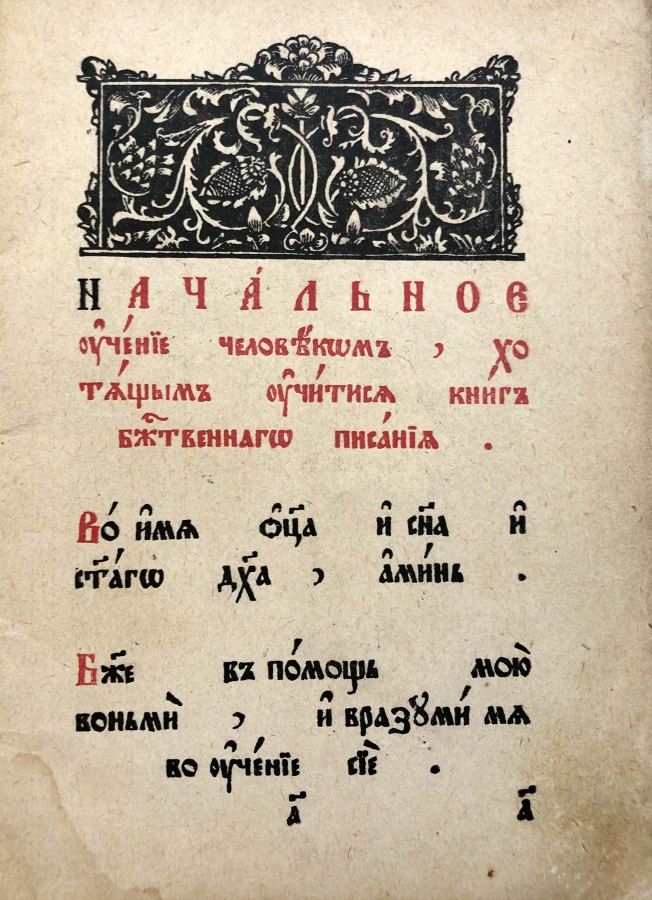 НАЧА́ЛЬНОЕ
ᲂу҆че́нїе человѣ́кѡмъ , хо
тѧ́щымъ ᲂу҆чи́тисѧ кни́гъ
бж҃твеннагѡ писа́нїѧ .
Во́ и҆мѧ ѻ҆ц҃а и҆ сн҃а и҆
ст҃а́гѡ дх҃а , а҆ми́нь .
Бж҃е въ по́мощь мою̀
воньмѝ , и҆ вразꙋми́ мѧ
во ᲂу҆че́нїе сїѐ .
а҃ а҃